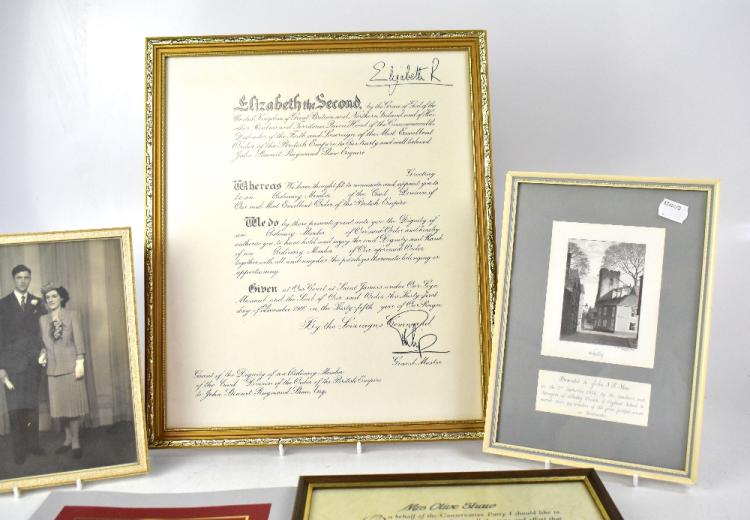 Elizabeth R
Elizabeth the Second, by the Grace of God of the
United Kingdom of Great Britain and Northern Ireland and of Her
other Realms and Territories Queen, Head of the Commonwealth,
Defender of the Faith and Sovereign of the Most Excellent
Order of the British Empire to Our trusty and well beloved
John Stewart Raymond Shaw Esquire
Greeting
Whereas We have thought fit to nominate and appoint you to
be an Ordinary Member of the Civil Division of
Our said Most Excellent Order of the British Empire
We do by these presents grant unto you the Dignity of
an Ordinary Member of Our said Order and hereby
authorise you to have hold and enjoy the said Dignity and Rank
of an Ordinary Member of Our aforesaid Order
together with all and singular the privileges thereunto belonging or
appertaining.
Given at Our Court at Saint James's under Our Sign
Manual and the Seal of Our said Order this Thirty-first
day of December 1996 in the Forty-fifth year of Our Reign
By the Sovereign's Command.
Grand Master
Grant of the Dignity of an Ordinary Member
of the Civil Division of the Order of the British Empire
to John Stewart Raymond Shaw, Esq.
Whalley
Presented to John S.R. Shaw
Mrs Olive Shaw
behalf of the Conservative Party I should like to